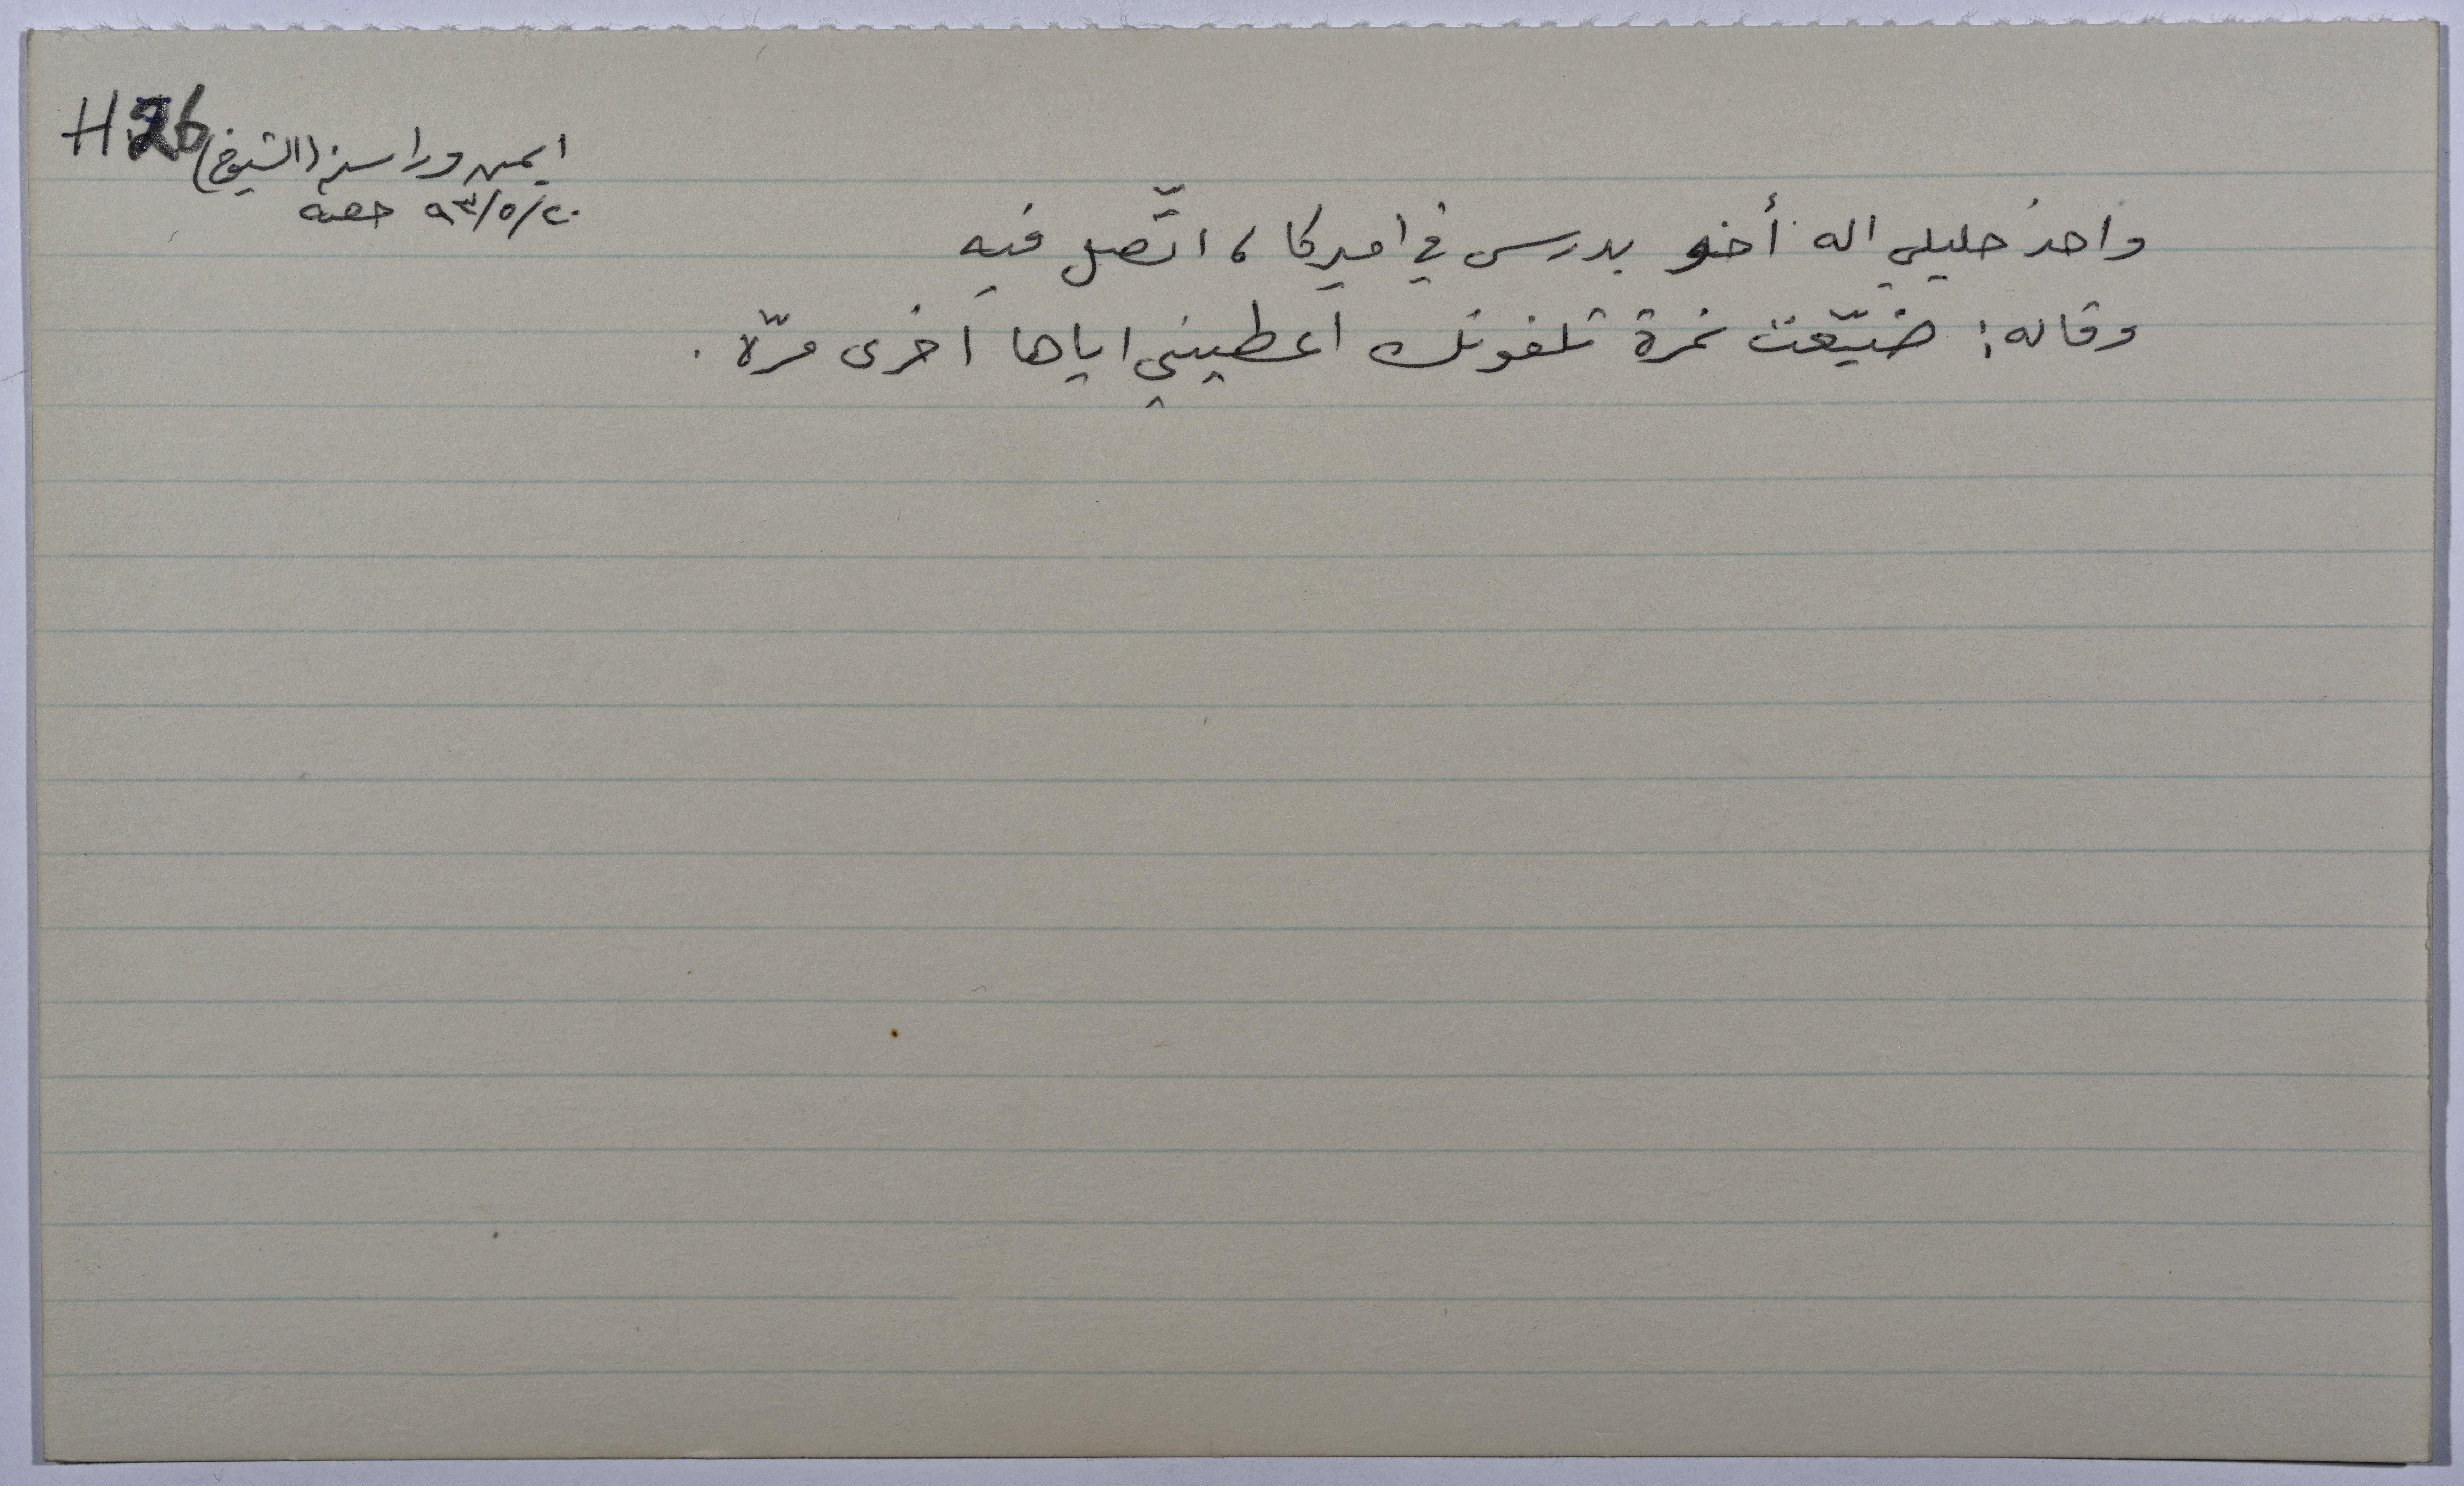 H26
ايمن وراسنه (الشيوخ)
٢٠/٥/٩٣ جمعه
واحد خليلي اله أخو بدرس في اميركا، اتّصل فيه
وقاله: ضيّعت نمرة تلفونك اعطيني اياها اخرى مرّة.